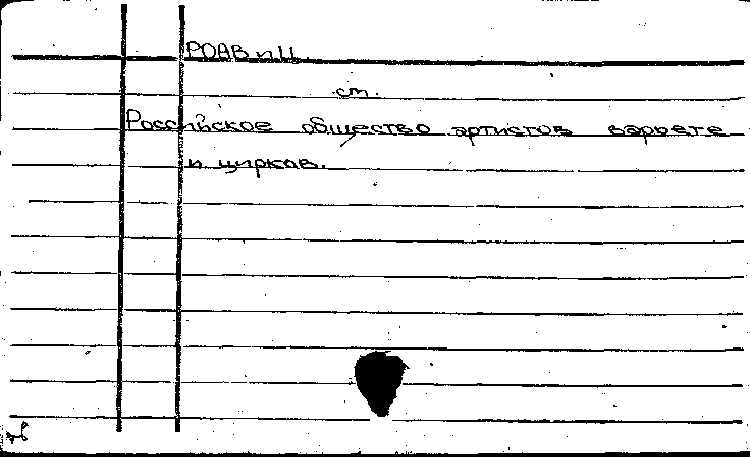 РОАВ и Ц.
см.
Российское общество артистов варьете
и цирков.